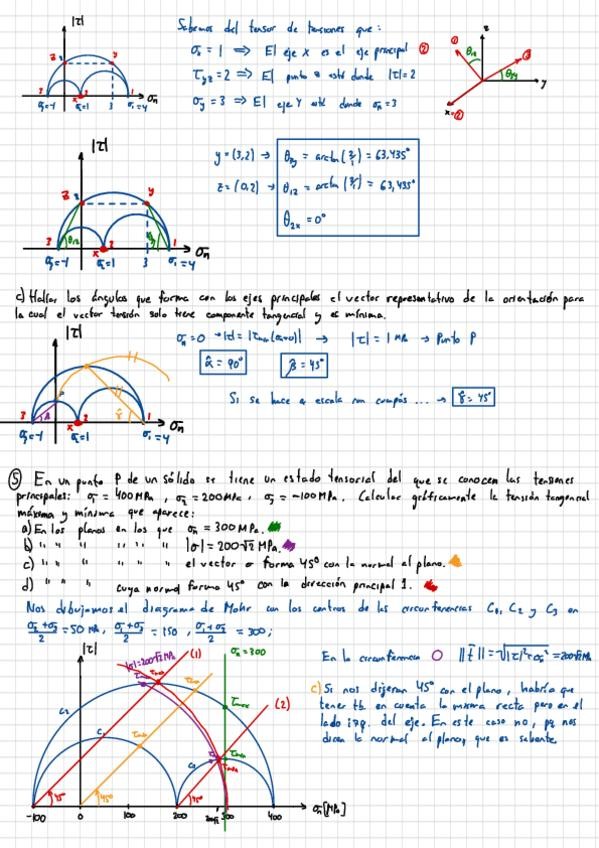 |τ|
Sabemos del tensor de tensiones que:
σx = 1 ⟹ El eje x es el eje principal ②
τyz = 2 ⟹ El punto está donde |τ| = 2
σy = 3 ⟹ El eje Y está donde σn = 3
z
y
3 2 3 1 σn
σ3=-1 σ2=1 3 σ1=4
|τ|
y = (3,2) →
z = (0,2) →
θ2x = 0°
σn
σ3=-1 σ2=1 3 σ1=4
c) Hallar los ángulos que forma con los ejes principales el vector representativo de la orientación para
la cual el vector tensión solo tiene componente tangencial y es mínima.
|τ|
→ |τ| = 1 MPa → Punto P
α̂ = 90° β̂ = 45°
Si se hace a escala con compás ... → γ̂ = 45°
σn
σ3=-1 σ2=1 σ1=4
⑤ En un punto P de un sólido se tiene un estado tensorial del que se conocen las tensiones
principales: σ1 = 400 MPa, σ2 = 200 MPa, σ3 = -100 MPa. Calcular gráficamente la tensión tangencial
máxima y mínima que aparece:
a) En los planos en los que σn = 300 MPa.
b) " " " " " " |σ| = 200√2 MPa.
c) " " " " " el vector σ forma 45° con la normal al plano.
d) " " " cuya normal forma 45° con la dirección principal 1.
Nos dibujamos el diagrama de Mohr con los centros de las circunferencias C1, C2 y C3 en
(σ2+σ3)/2 = 50 MPa, = 150, = 300;
|τ|
|σ|=200√2MPa
(1)
σn = 300
(2)
C2
C1
C3
τmax
τmin
45°
45°
45°
-100 0 100 200 300 400 σn [MPa]
En la circunferencia
c) Si nos dijeran 45° con el plano, habría que
tener tb en cuenta la misma recta pero en el
lado izq. del eje. En este caso no, pq nos
dicen la normal al plano, que es saliente.